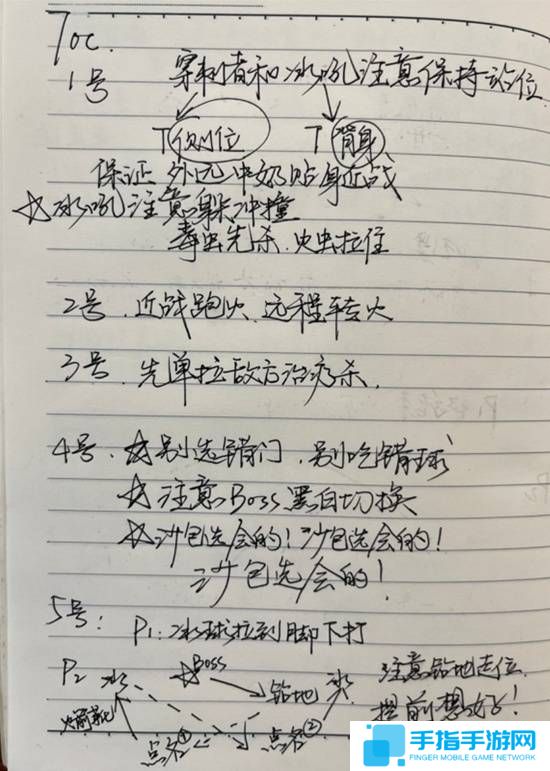 Toc.
1号 穿刺者和冰吼注意保持站位
T侧位 T背身
保证 外凸中奶贴身近战
☆冰吼注意躲冲撞
毒虫先杀.火虫拉住
2号.近战跑火、远程转火
3号.先单拉敌方治疗杀.
4号.☆别选错门.别吃错球
☆注意Boss黑白切换
☆沙包选会的!沙包选会的!
沙包选会的!
5号: P1:冰球拉到脚下打
P2 冰 ☆Boss 钻地 冰 注意钻地走位
提前想好!
火箭靴 点名① 点名②
手指手游网